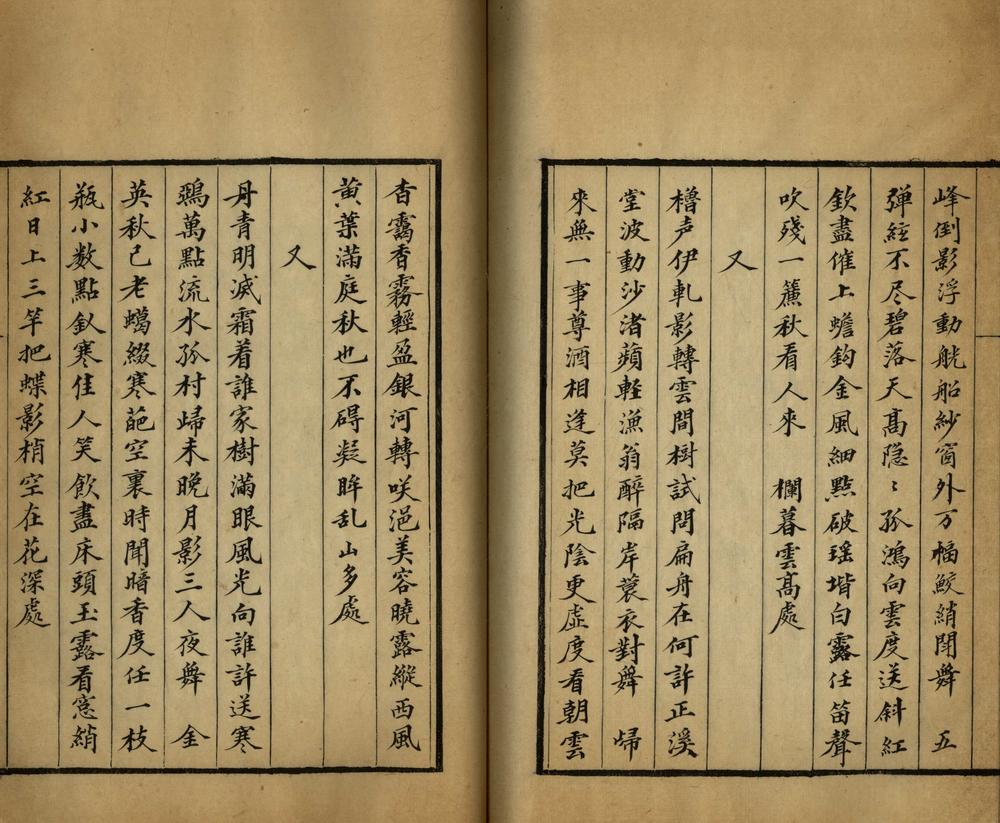 峰倒影浮動觥船紗窗外万幅鮫綃閒舞　五
彈絃不尽碧落天髙隐〻孤鴻向雲度送斜紅
欽盡催上蟾鈎金風細㸃破瑶堦白露任笛聲
吹殘一簾秋看人來　欄暮雲髙處
又
櫓声伊軋影轉雲間樹試問扁舟在何許正溪
堂波動沙渚蘋軽漁翁醉隔岸蓑衣對舞　歸
來無一事尊酒相逢莫把光陰更虚度看朝雲
杳靄香霧輕盈銀河轉咲浥美容曉露縱西風
黄葉滿庭秋也不碍凝眸乱山多處
又
丹青明滅霜着誰家樹滿眼風光向誰許送寒
鵶萬點流水孤村歸未晚月影三人夜舞　金
英秋已老蠟綴寒葩空裏時聞暗香度任一枝
瓶小数點釵寒佳人笑飲盡床頭玉露看窓綃
紅日上三竿把蝶影梢空在花深處